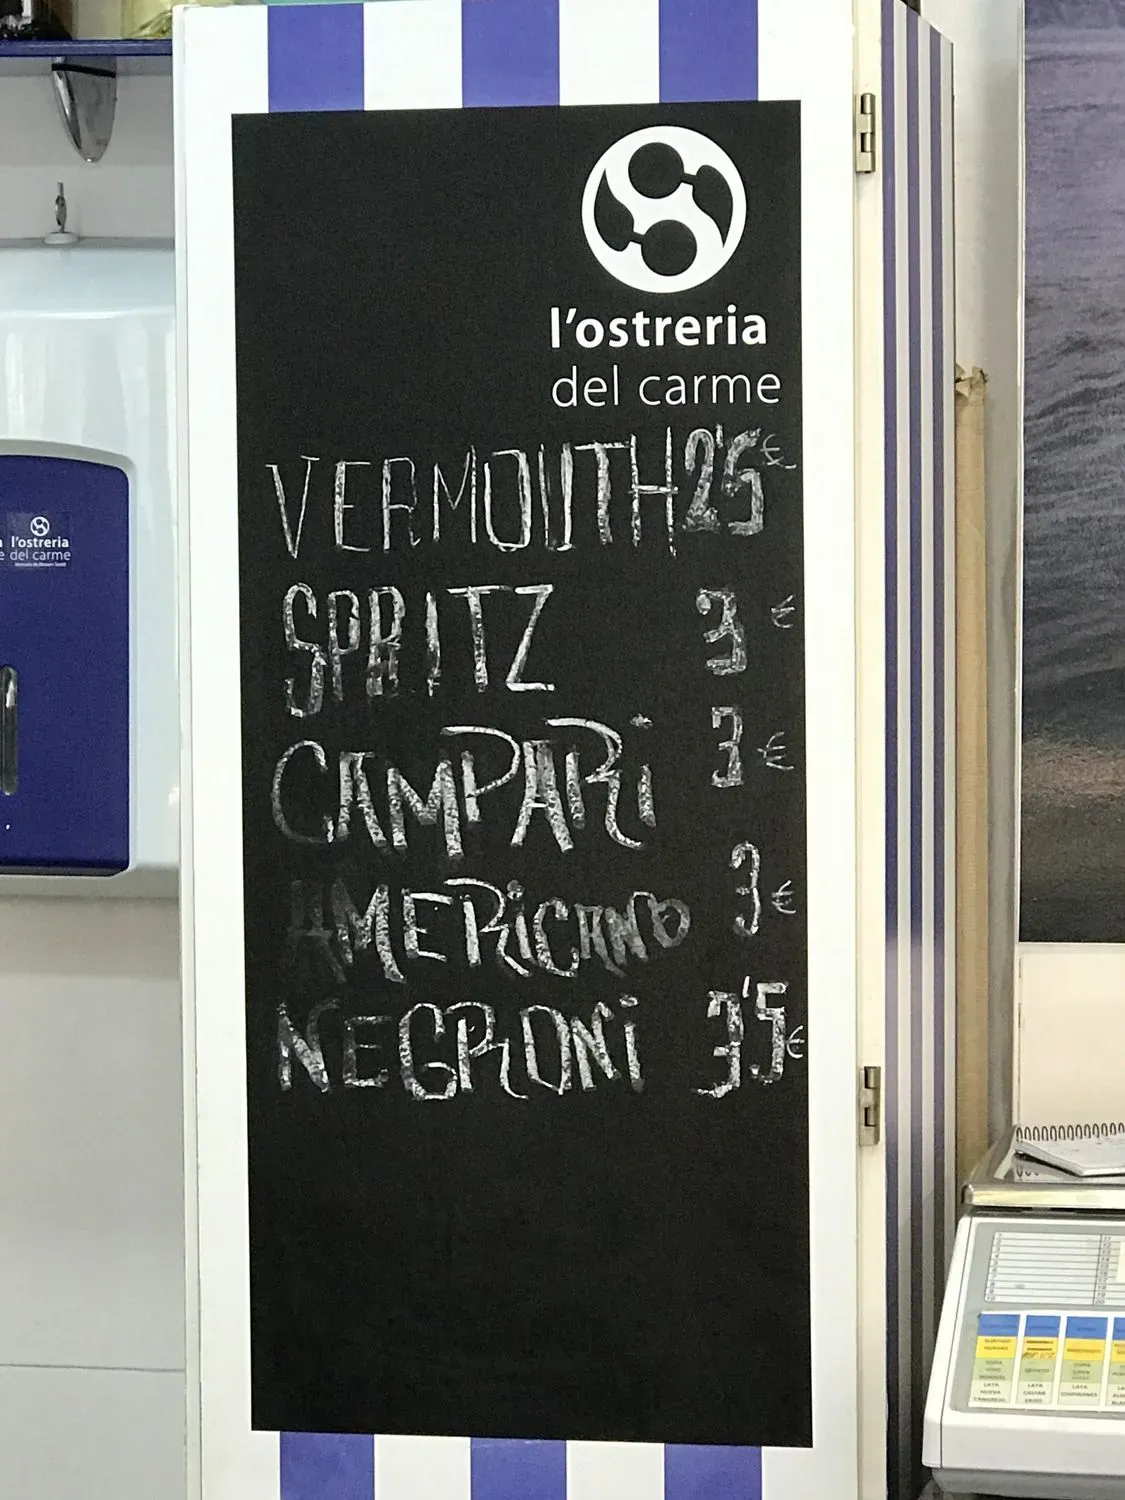 l'ostreria
del carme
VERMOUTH 2'5 €
SPRITZ 3 €
CAMPARi 3 €
AMERiCANO 3 €
NEGRONi 3'5 €
l'ostreria
del carme